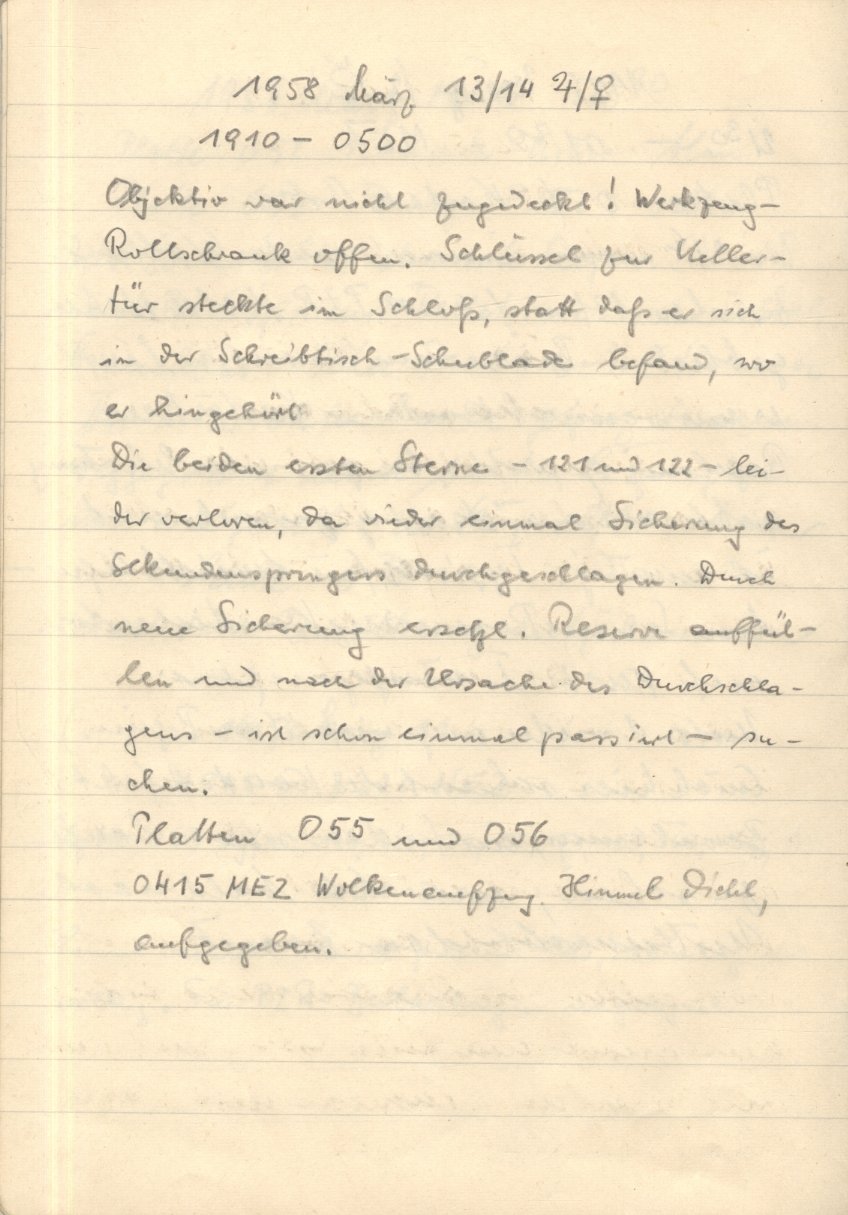 1958 März 13/14 ♃/♀
1910 – 0500
Objektiv war nicht zugedeckt! Werkzeug-
Rollschrank offen. Schlüssel zur Keller-
tür steckte im Schloß, statt daß er sich
in der Schreibtisch-Schublade befand, wo
er hingehört
Die beiden ersten Sterne – 121 und 122 – lei-
der verloren, da wieder einmal Sicherung des
Sekundenspringers durchgeschlagen. Durch
neue Sicherung ersetzt. Reserve auffül-
len und nach der Ursache des Durchschla-
gens – ist schon einmal passiert – su-
chen.
Platten 055 und 056
0415 MEZ Wolkenaufzug. Himmel dicht,
aufgegeben.